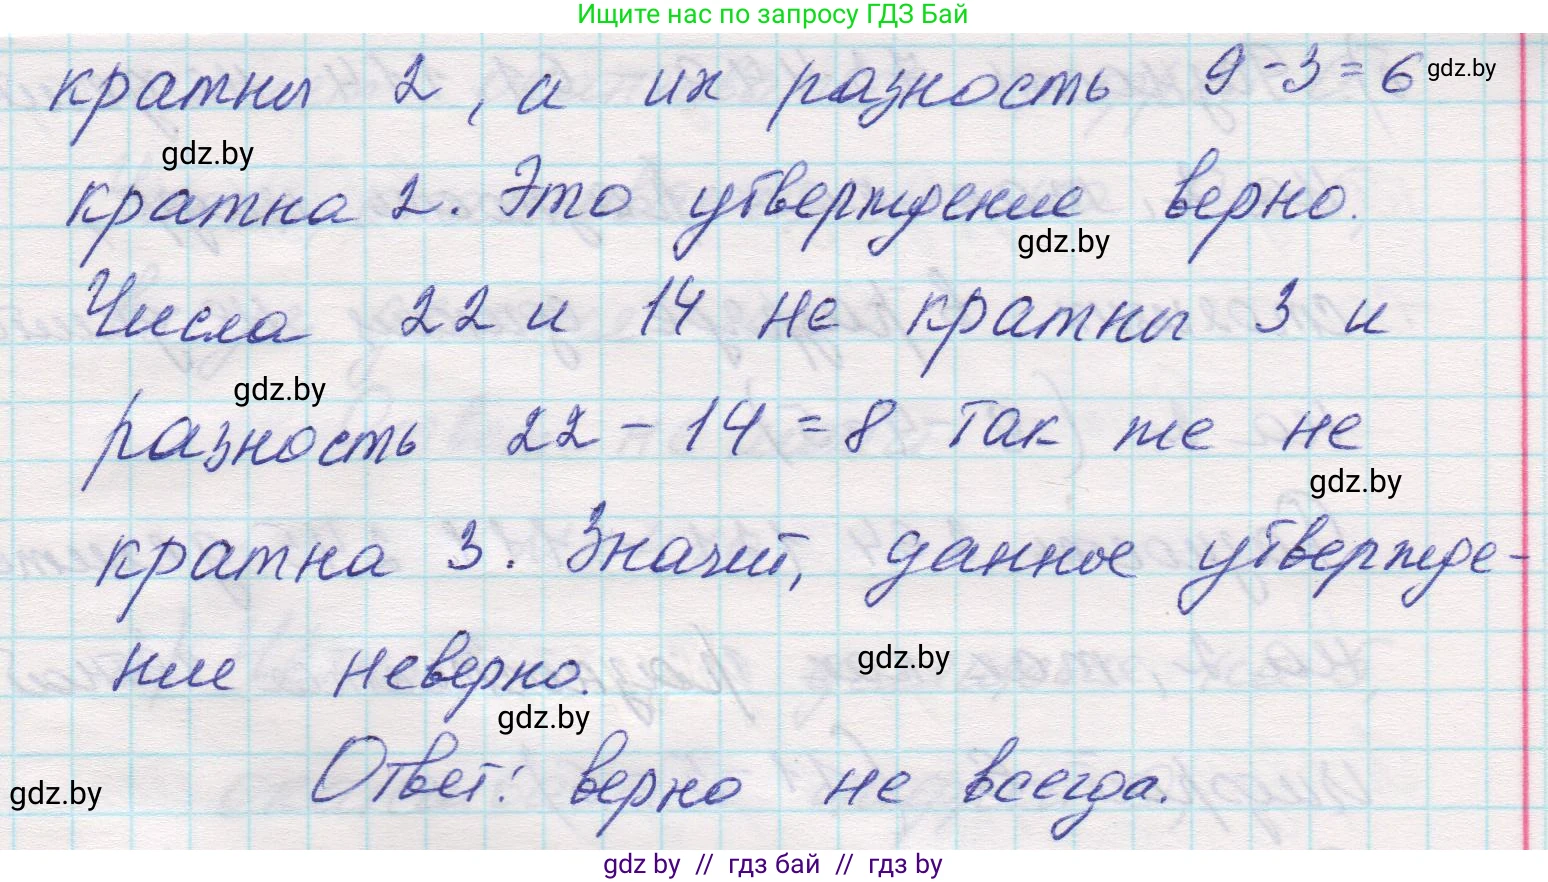 Ищите нас по запросу ГДЗ Бай
кратны 2, а их разность 9-3=6 gdz.by
gdz.by
кратна 2. Это утверждение верно.
gdz.by
Числа 22 и 14 не кратны 3 и
gdz.by
разность 22-14=8 так же не
gdz.by
кратна 3. Значит, данное утвержде-
ние неверно.
gdz.by
gdz.by
Ответ: верно не всегда.
gdz.by
gdz by // гдз бай // гдз by